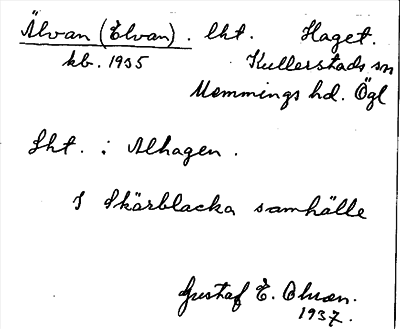 Älvan (Elvan). lht. Haget.
kb. 1935 Kullerstads sn
Memmings hd. Ögl
Lht. i Alhagen.
I Skärblacka samhälle
Gustaf E. Olsson.
1937.